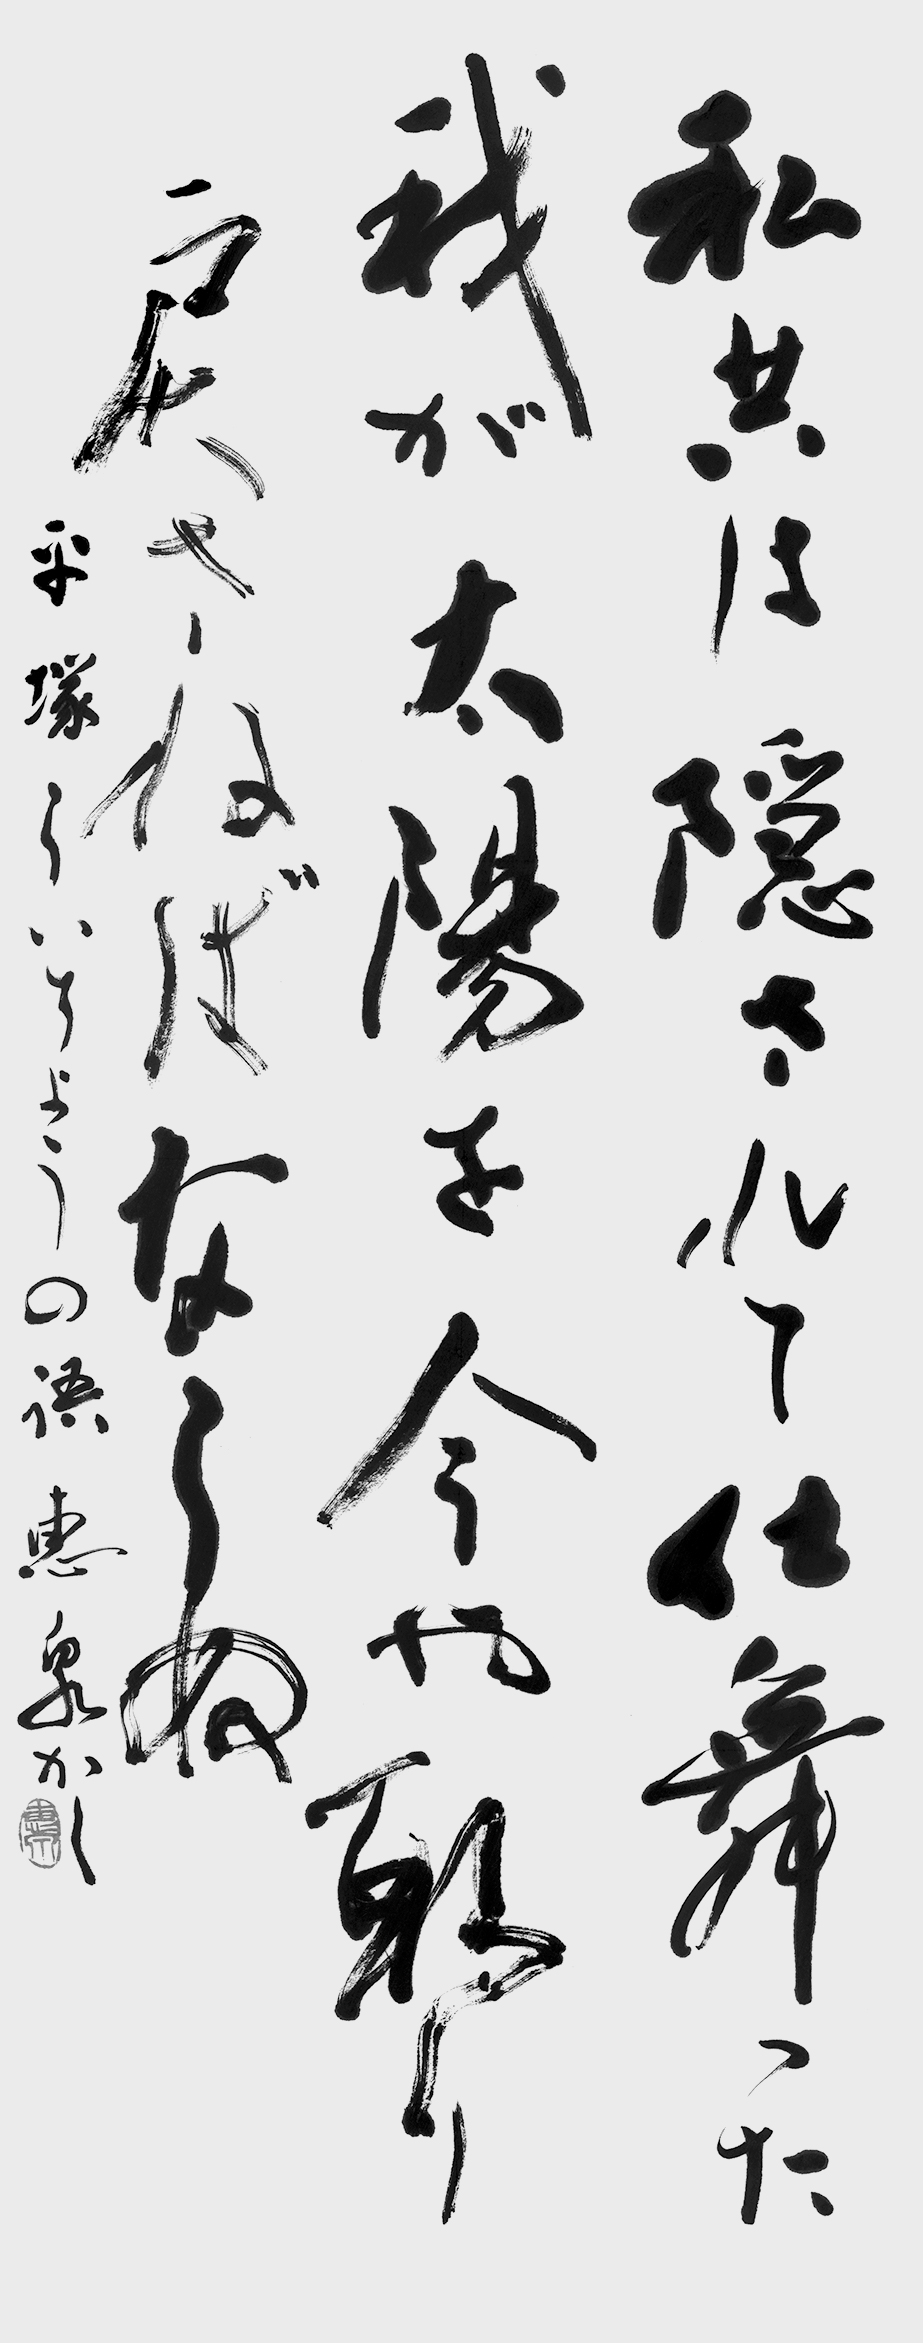 私共は隠されて仕舞った
我が太陽を今や取り
戻さねばならぬ
平塚らいちょうの語 恵泉かく